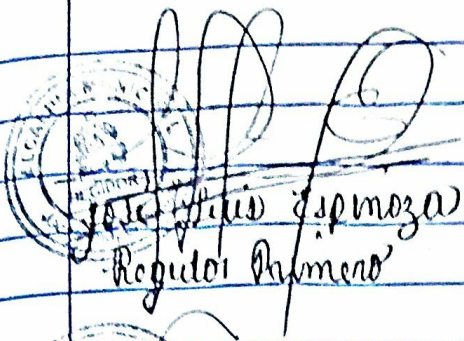 José Luis Espinoza
Regidor Primero